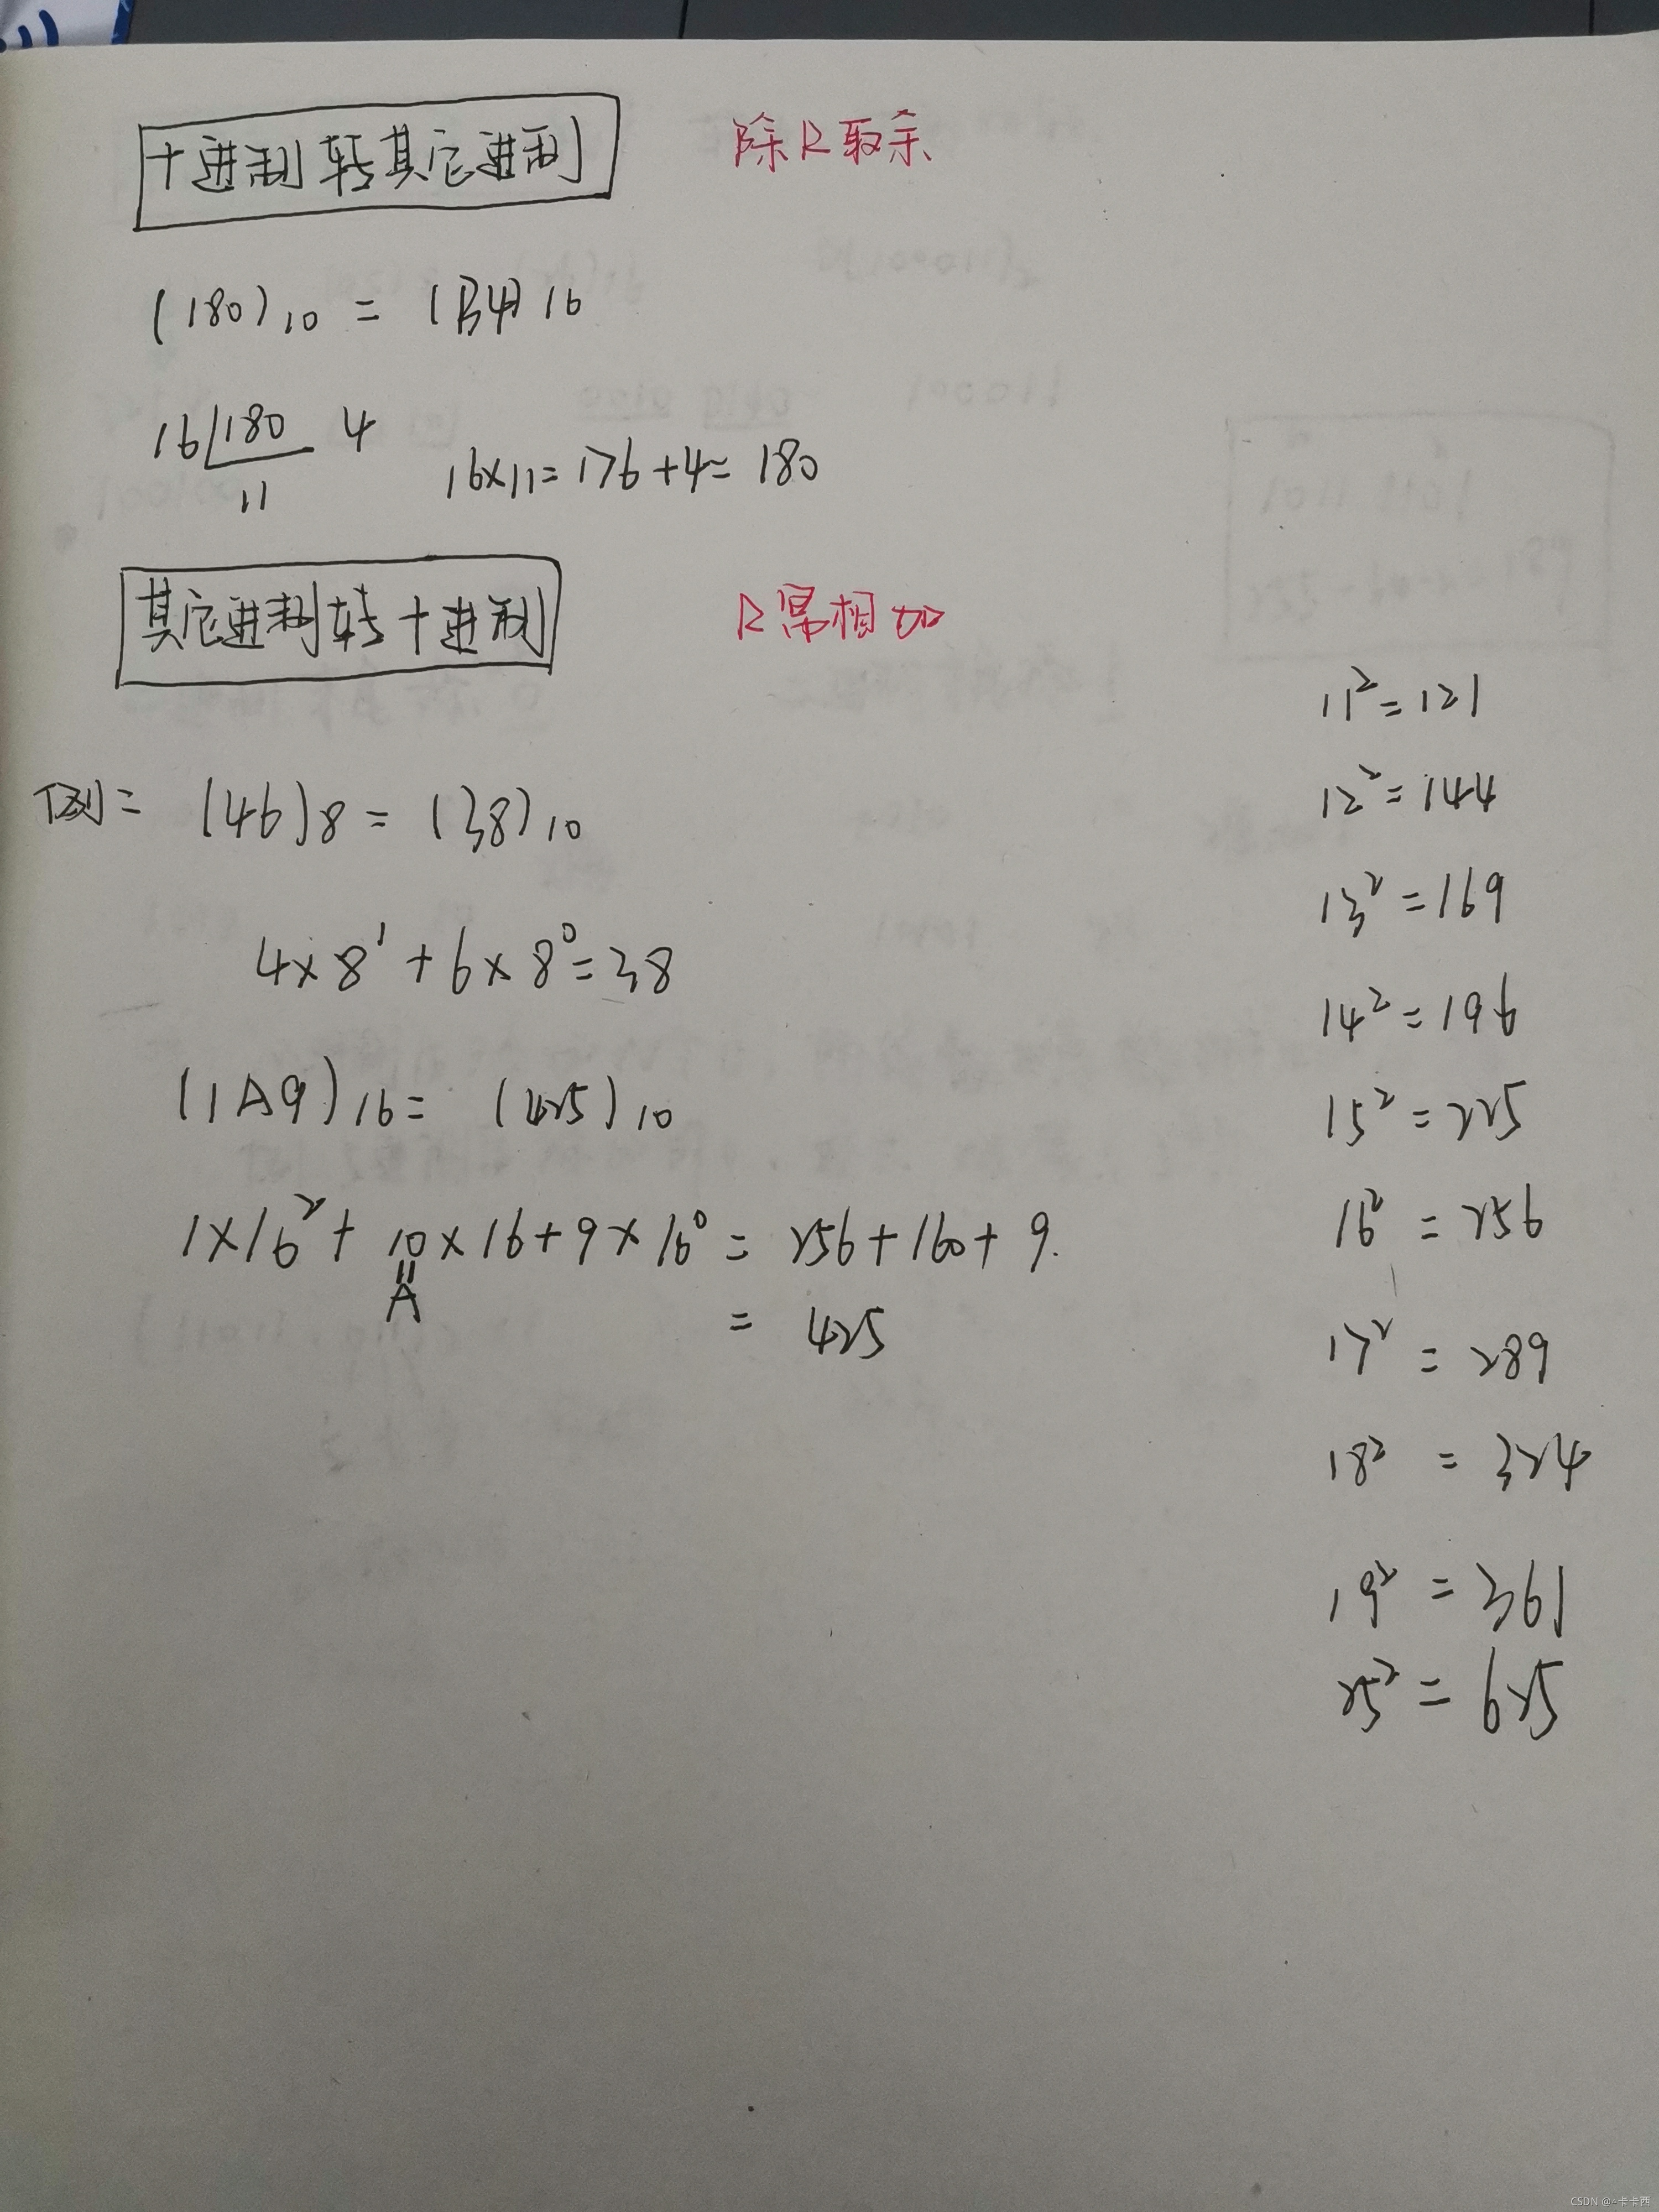 十进制转其它进制 除R取余
(180)10 = (B4)16
16 180 4
11 16×11=176+4=180
其它进制转十进制 R幂相加
例= (46)8 = (38)10
4×8¹+6×8⁰=38
(1A9)16= (425)10
1×16²+10×16+9×16⁰=256+160+9.
A
= 425
11²=121
12²=144
13²=169
14²=196
15²=225
16²=256
17²=289
18²=324
19²=361
25²=625
CSDN @^卡卡西